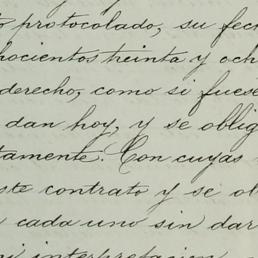 protocolado, su fec
hocientos treinta y och
derecho, como si fuese
dan hoy, y se oblig
tamente. Con cuyas
ste contrato y se ob
cada uno sin dar
interpretacion